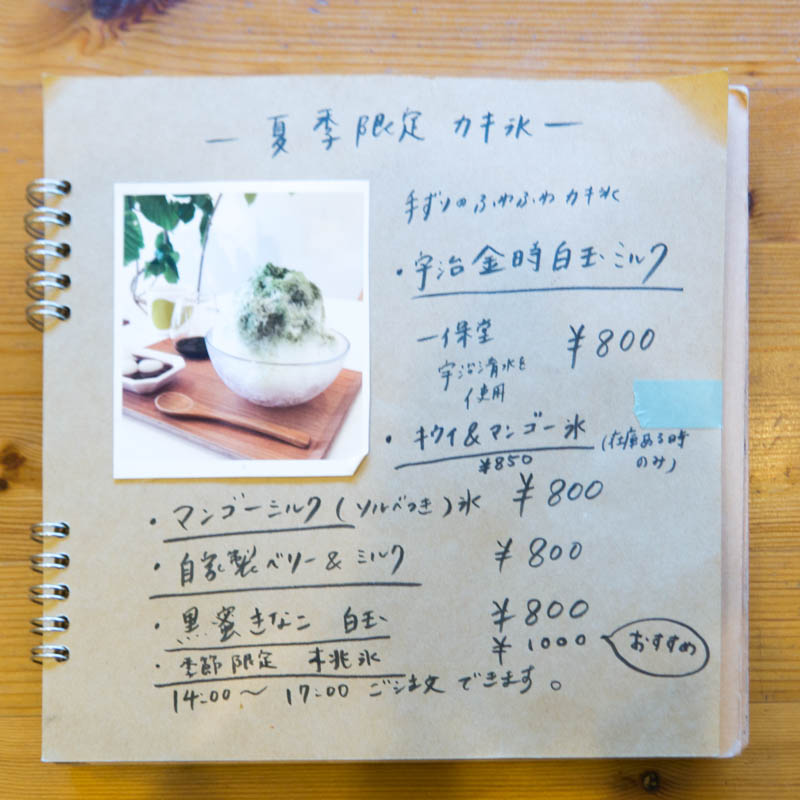 ― 夏季限定 カキ氷 ―
手ずりの ふわふわ カキ氷
・宇治金時白玉ミルク
一保堂 ¥800
宇治清水を
使用
・キウイ&マンゴー氷 (在庫ある時
のみ)
¥850
・マンゴーミルク(ソルベつき)氷 ¥800
・自家製ベリー&ミルク ¥800
・黒蜜きなこ 白玉 ¥800
・季節限定 桃氷 ¥1000 おすすめ
14:00～17:00 ご注文できます。